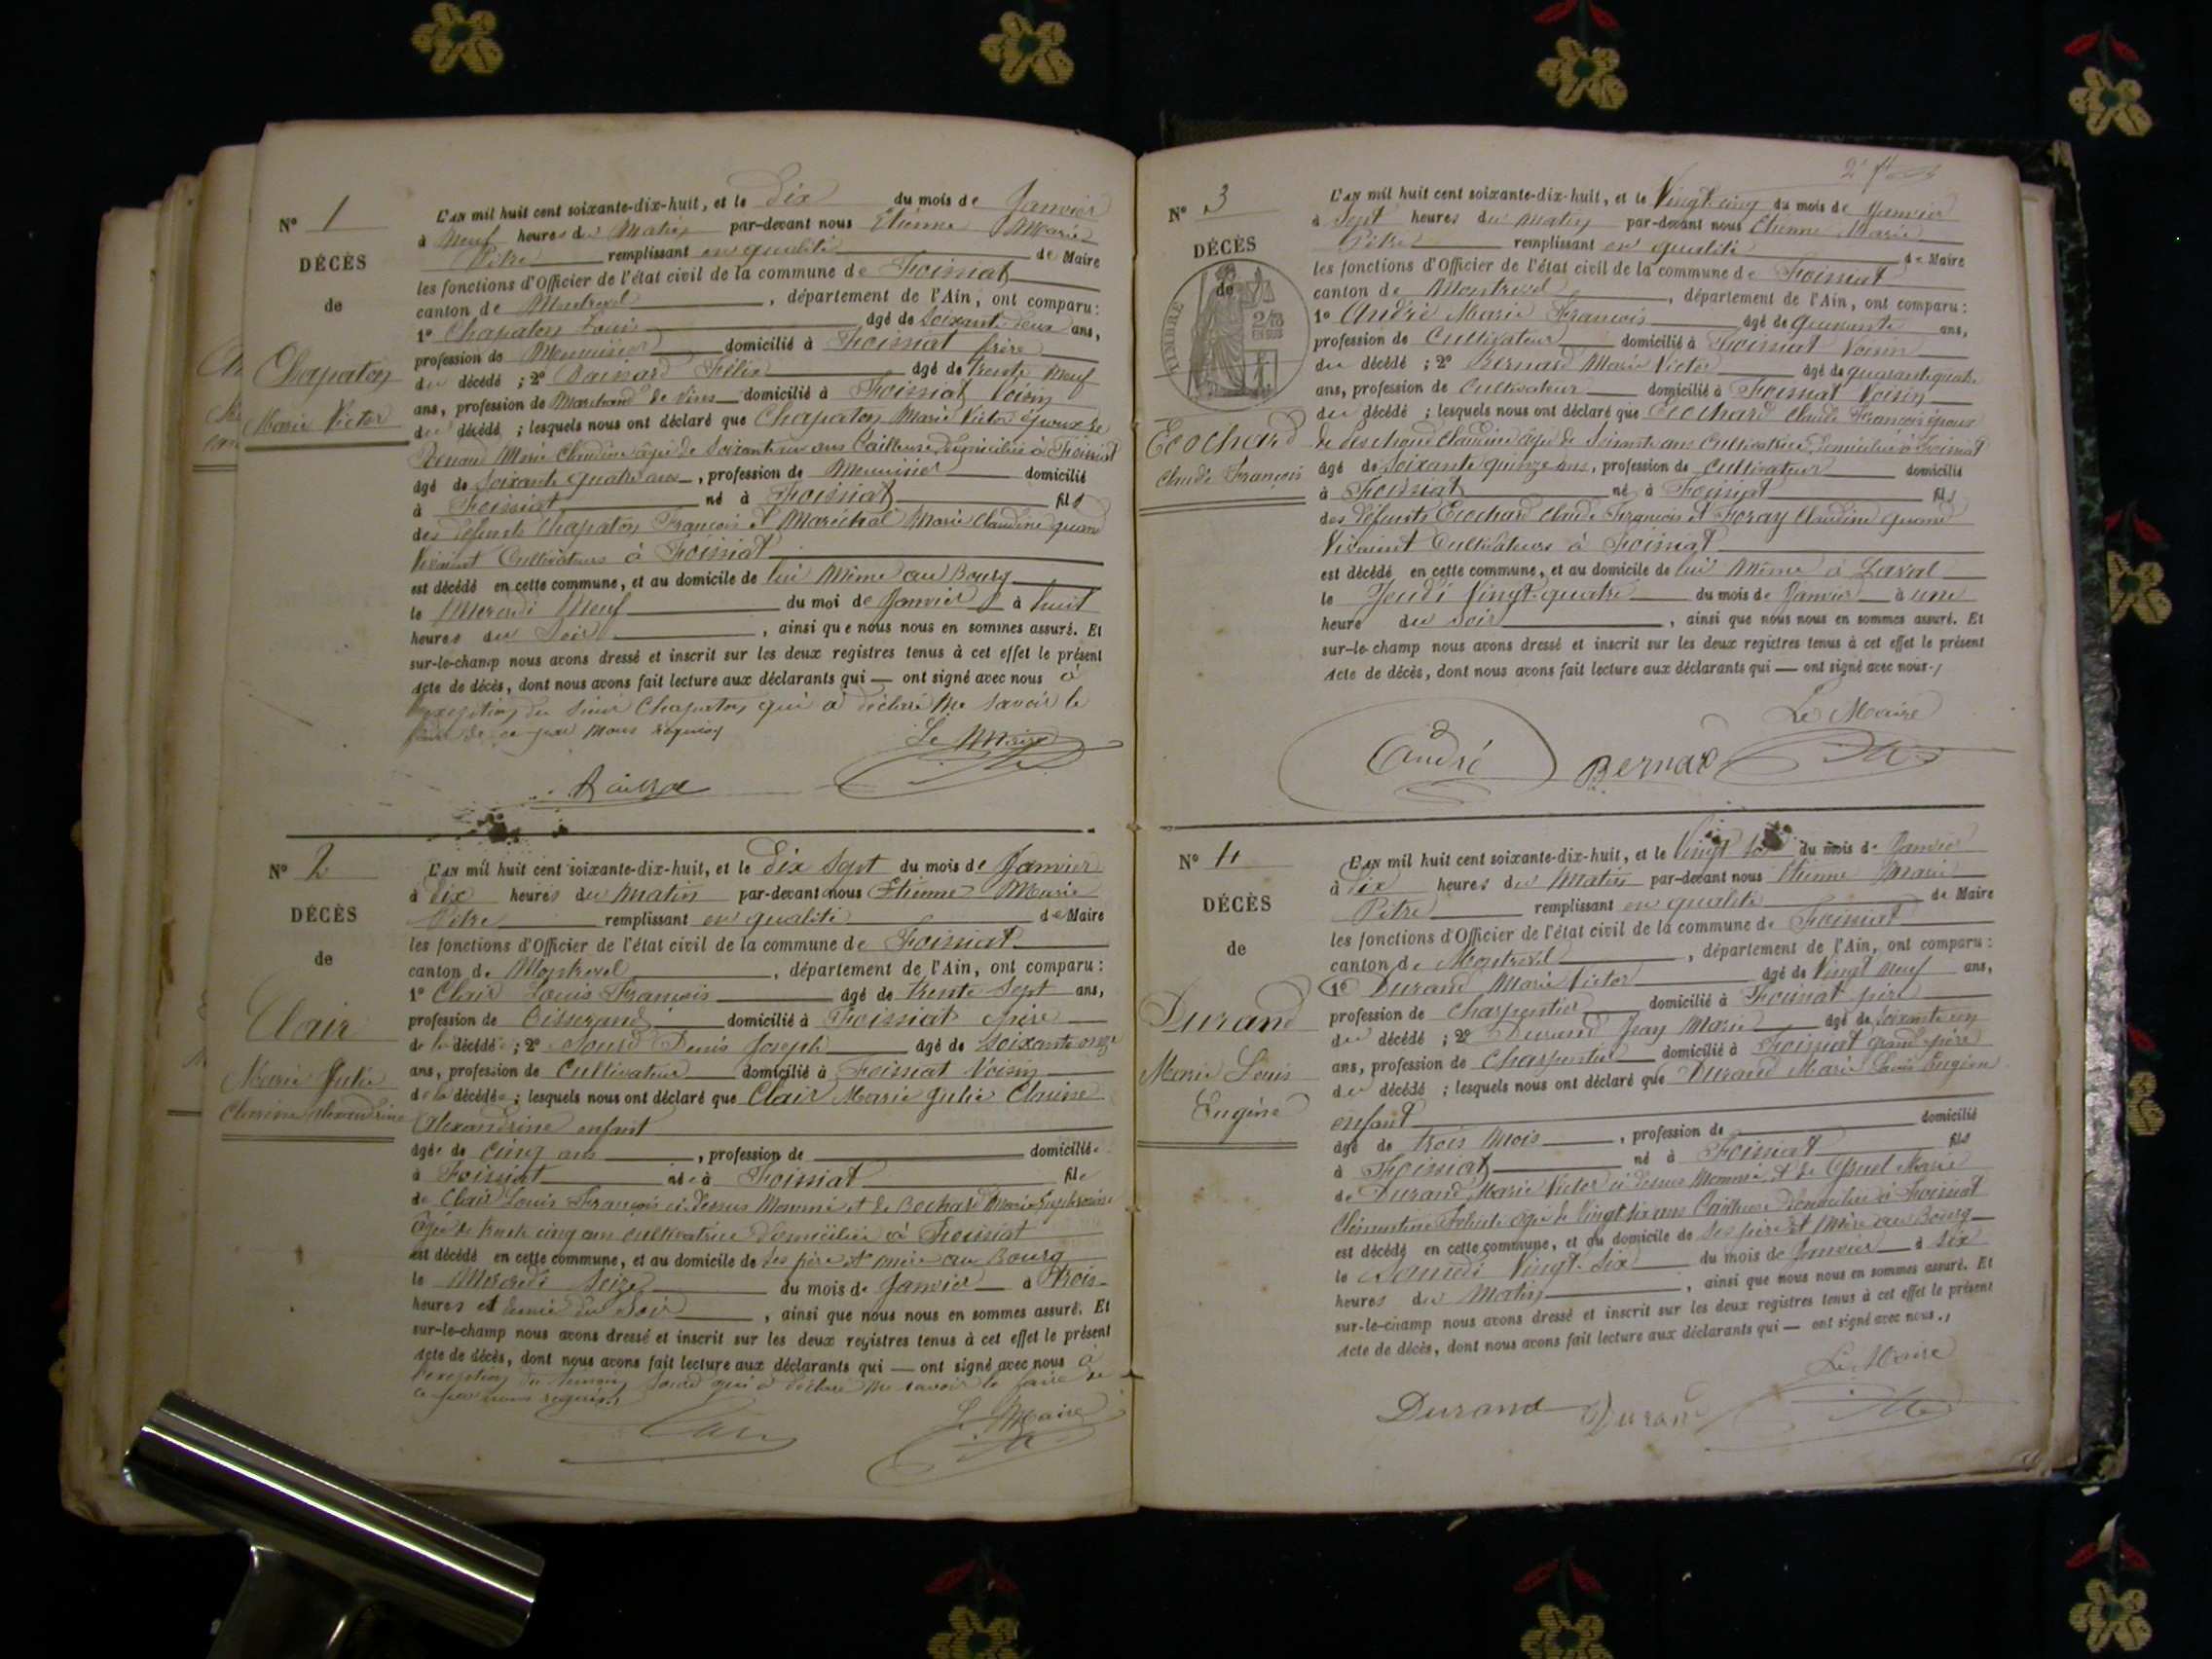 N° 1
DÉCÈS
de
Chapaton
Marie Victor
L'AN mil huit cent soixante-dix-huit, et le Dix du mois de Janvier
à Neuf heures du Matin par-devant nous Etienne Marie
Pitre remplissant en qualité de Maire
les fonctions d'Officier de l'état civil de la commune de Foissiat
canton de Montrevel, département de l'Ain, ont comparu :
1° Chapaton Louis âgé de soixante deux ans,
profession de Menuisier domicilié à Foissiat frère
du décédé ; 2° Félix âgé de trente neuf
ans, profession de Marchand de Vins domicilié à Foissiat Voisin
du décédé ; lesquels nous ont déclaré que Chapaton Marie Victor époux de
Renaud Marie Claudine âgée de soixante ans Tailleuse domiciliée à Foissiat
âgé de soixante quatre ans, profession de Menuisier domicilié
à Foissiat né à Foissiat fils
des défunts Chapaton François et Maréchal Marie Claudine quand
Vivaient Cultivateurs à Foissiat
est décédé en cette commune, et au domicile de lui Même au Bourg
le Mercredi Neuf du moi de Janvier à huit
heures du Soir, ainsi que nous nous en sommes assuré. Et
sur-le-champ nous avons dressé et inscrit sur les deux registres tenus à cet effet le présent
acte de décès, dont nous avons fait lecture aux déclarants qui — ont signé avec nous à
l'exception du sieur Chapaton qui a déclaré ne savoir le
faire de ce par nous requis
Le Maire
N° 2
DÉCÈS
de
Clair
Marie Julie
Clarisse Alexandrine
L'AN mil huit cent soixante-dix-huit, et le dix sept du mois de Janvier
à Dix heures du Matin par-devant nous Etienne Marie
Pitre remplissant en qualité de Maire
les fonctions d'Officier de l'état civil de la commune de Foissiat
canton de Montrevel, département de l'Ain, ont comparu :
1° Clair Louis François âgé de trente sept ans,
profession de Tisserand domicilié à Foissiat père
de la décédée ; 2° Sourd Denis Joseph âgé de soixante onze
ans, profession de Cultivateur domicilié à Foissiat Voisin
de la décédée ; lesquels nous ont déclaré que Clair Marie Julie Clarisse
Alexandrine enfant
âgée de cinq ans, profession de domiciliée
à Foissiat née à Foissiat fille
de Clair Louis François ci dessus Nommé et de Bochard Marie Euphrosine
âgée de trente cinq ans cultivatrice domiciliée à Foissiat
est décédé en cette commune, et au domicile de ses père et mère au Bourg
le Mercredi seize du mois de Janvier à trois
heures et demie du Soir, ainsi que nous nous en sommes assuré. Et
sur-le-champ nous avons dressé et inscrit sur les deux registres tenus à cet effet le présent
acte de décès, dont nous avons fait lecture aux déclarants qui — ont signé avec nous à
l'exception du temoin Sourd qui a déclaré ne savoir le faire de
ce par nous requis
Clair
Le Maire
N° 3
DÉCÈS
de
TIMBRE
Ecochard
Claude François
L'AN mil huit cent soixante-dix-huit, et le Vingt cinq du mois de Janvier
à Sept heures du Matin par-devant nous Etienne Marie
Pitre remplissant en qualité de Maire
les fonctions d'Officier de l'état civil de la commune de Foissiat
canton de Montrevel, département de l'Ain, ont comparu :
1° André Marie François âgé de quarante ans,
profession de Cultivateur domicilié à Foissiat Voisin
du décédé ; 2° Bernard Marie Victor âgé de quarante quatre
ans, profession de Cultivateur domicilié à Foissiat Voisin
du décédé ; lesquels nous ont déclaré que Ecochard Claude François époux
de Claudine âgée de soixante ans Cultivatrice domiciliée à Foissiat
âgé de Soixante quinze ans, profession de Cultivateur domicilié
à Foissiat né à Foissiat fils
des défunts Ecochard Claude François et Foray Claudine quand
Vivaient Cultivateurs à Foissiat
est décédé en cette commune, et au domicile de lui Même à Laval
le Jeudi Vingt-quatre du mois de Janvier à une
heure du soir, ainsi que nous nous en sommes assuré. Et
sur-le-champ nous avons dressé et inscrit sur les deux registres tenus à cet effet le présent
acte de décès, dont nous avons fait lecture aux déclarants qui — ont signé avec nous.
Le Maire
André Bernard
N° 4
DÉCÈS
de
Durand
Marie Louis
Eugène
L'AN mil huit cent soixante-dix-huit, et le Vingt six du mois de Janvier
à Dix heures du Matin par-devant nous Etienne Marie
Pitre remplissant en qualité de Maire
les fonctions d'Officier de l'état civil de la commune de Foissiat
canton de Montrevel, département de l'Ain, ont comparu :
1° Durand Marie Victor âgé de Vingt Neuf ans,
profession de Charpentier domicilié à Foissiat père
du décédé ; 2° Durand Jean Marie âgé de soixante un
ans, profession de Charpentier domicilié à Foissiat grand-père
du décédé ; lesquels nous ont déclaré que Durand Marie Louis Eugène
enfant
âgé de trois Mois, profession de domicilié
à Foissiat né à Foissiat fils
de Durand Marie Victor ci dessus Nommé et de Marie
Clémentine âgée de Vingt six ans Tailleuse domiciliée à Foissiat
est décédé en cette commune, et au domicile de ses père et Mère au Bourg
le Samedi Vingt-Six du mois de Janvier à six
heures du Matin, ainsi que nous nous en sommes assuré. Et
sur-le-champ nous avons dressé et inscrit sur les deux registres tenus à cet effet le présent
acte de décès, dont nous avons fait lecture aux déclarants qui — ont signé avec nous.
Le Maire
Durand Durand